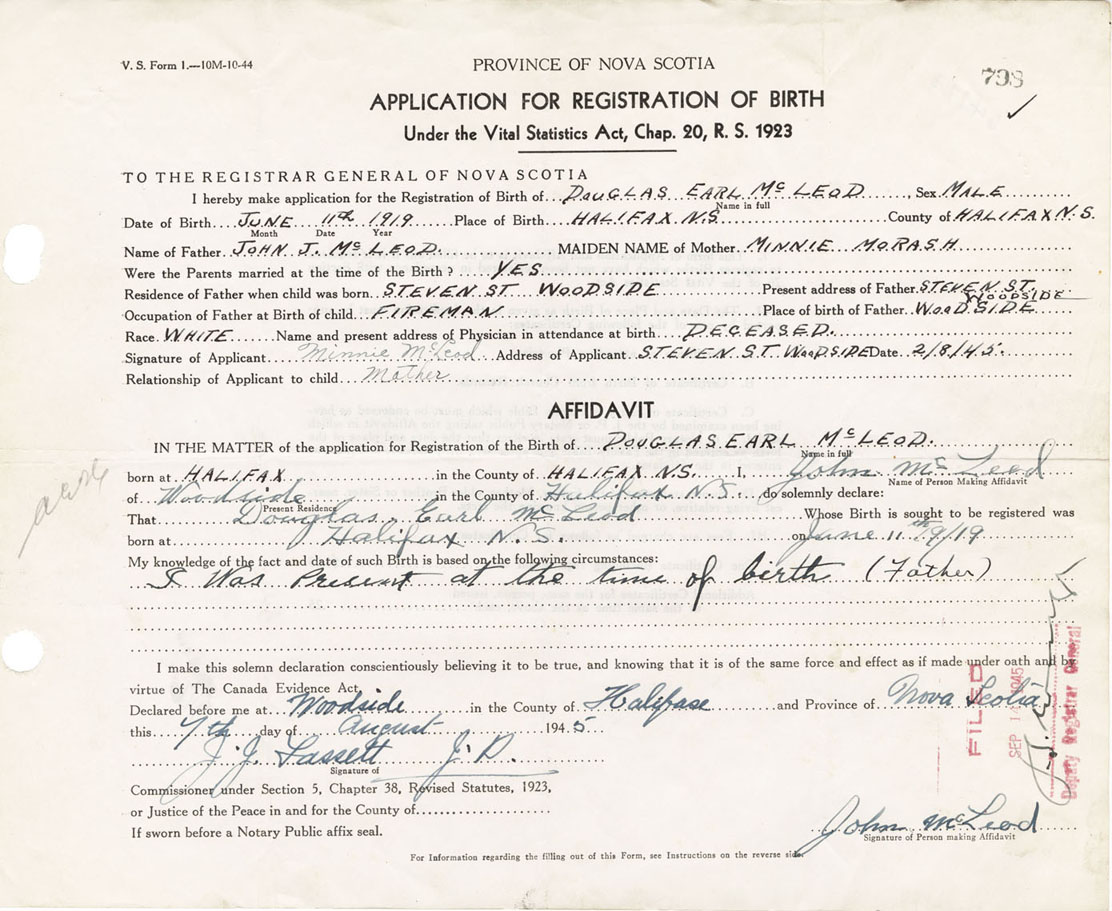 V. S. Form 1.—10M-10-44
PROVINCE OF NOVA SCOTIA
798
APPLICATION FOR REGISTRATION OF BIRTH
Under the Vital Statistics Act, Chap. 20, R. S. 1923
TO THE REGISTRAR GENERAL OF NOVA SCOTIA
I hereby make application for the Registration of Birth of DOUGLAS EARL McLEOD, Sex MALE
Name in full
Date of Birth JUNE 11th 1919 Place of Birth HALIFAX N.S County of HALIFAX N.S.
Month Date Year
Name of Father JOHN J. McLEOD. MAIDEN NAME of Mother MINNIE MORASH
Were the Parents married at the time of the Birth? YES
Residence of Father when child was born STEVEN ST WOODSIDE Present address of Father STEVEN ST. WOODSIDE
Occupation of Father at Birth of child FIREMAN Place of birth of Father WOODSIDE
Race WHITE Name and present address of Physician in attendance at birth DECEASED.
Signature of Applicant Minnie McLeod Address of Applicant STEVEN ST WOODSIDE Date 2/8/45.
Relationship of Applicant to child Mother
AFFIDAVIT
IN THE MATTER of the application for Registration of the Birth of DOUGLAS EARL McLEOD.
Name in full
born at HALIFAX in the County of HALIFAX N.S. I, John McLeod
Name of Person Making Affidavit
of Woodside in the County of Halifax N.S. do solemnly declare:
Present Residence
That Douglas, Earl McLeod Whose Birth is sought to be registered was
born at Halifax N.S. on June 11th 19/19
My knowledge of the fact and date of such Birth is based on the following circumstances:
I Was Present at the time of birth (Father)
I make this solemn declaration conscientiously believing it to be true, and knowing that it is of the same force and effect as if made under oath and by
virtue of The Canada Evidence Act,
Declared before me at Woodside in the County of Halifax and Province of Nova Scotia
this 7th day of August 1945
J. J. J. P.
Signature of
Commissioner under Section 5, Chapter 38, Revised Statutes, 1923,
or Justice of the Peace in and for the County of
If sworn before a Notary Public affix seal.
John McLeod
Signature of Person making Affidavit
For Information regarding the filling out of this Form, see Instructions on the reverse side.
FILED
SEP 1945
Deputy Registrar General